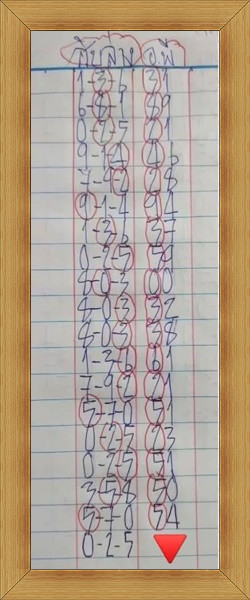 1-3-6 31
6-8-1 89
0-2-5 21
9-1-4 46
7-9-2 28
9-1-4 94
1-3-6 37
0-2-5 59
8-0-3 00
8-0-3 32
8-0-3 38
1-3-6 61
7-9-2 21
5-7-0 51
0-2-5 23
0-2-5 51
3-5-8 50
5-7-0 54
0-2-5